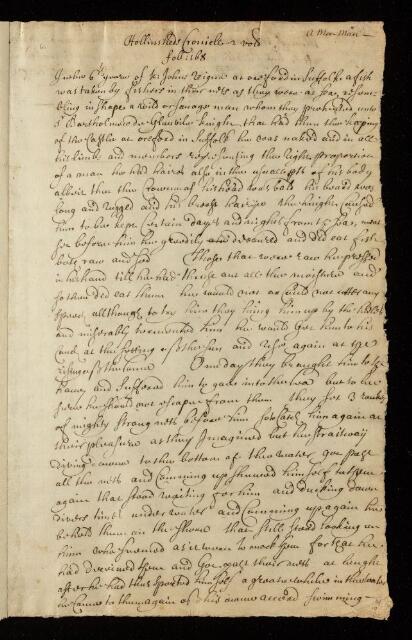 A Mer Man
Hollinsheds Cronicle 2 vol
fol: 168
In the 6th yeare of K: Johns Reigne at oreford in Suffolk a fish
was taken by fishers in their nets as they were at sea, resem-
bling in shape a wild or savage man whom they presented unto
Sr Bartholmew de Glanvile knight that had then the keeping
of the Castle at oreford in Suffolk he was naked and in all
his limbs and members representing the right proportion
of a man he had haires also in the usuall parts of his body
albeit that the Crowne of his head was bald his beard was
long and rugged and his breast hairye the knight caused
him to bee kept certain dayes and nights from the sea, meat
set before him he greedily devoured and did eat fish
both raw and sod those that were raw he pressed
in his hand till he had thrust out all the moisture and
so then did eat them he would not or could not utter any
speech although to try him they hung him up by the heeles
and miserably tormented him he would get him to his
Couch at the setting of the sun and rise again at the
rising of the same One day they brought him to the
haven and suffered him to goe into the sea but to bee
sure he should not escape from them they set 3 rankes
of mighty strong nets before him to catch him again at
their pleasure as they Imagined but hee straitway
diving downe to the bottom of the water got past
all the nets and comming up shewed himself to them
again that stood waiting for him and ducking down
divers times under water and comming up again he
beheld them on the shore that still stood looking on
him who seemed as it were to mock them for that he
had deceived them and got past their nets at lenght
after he had thus sported himself a great while in the water
he came to them again of his owne accord swimming